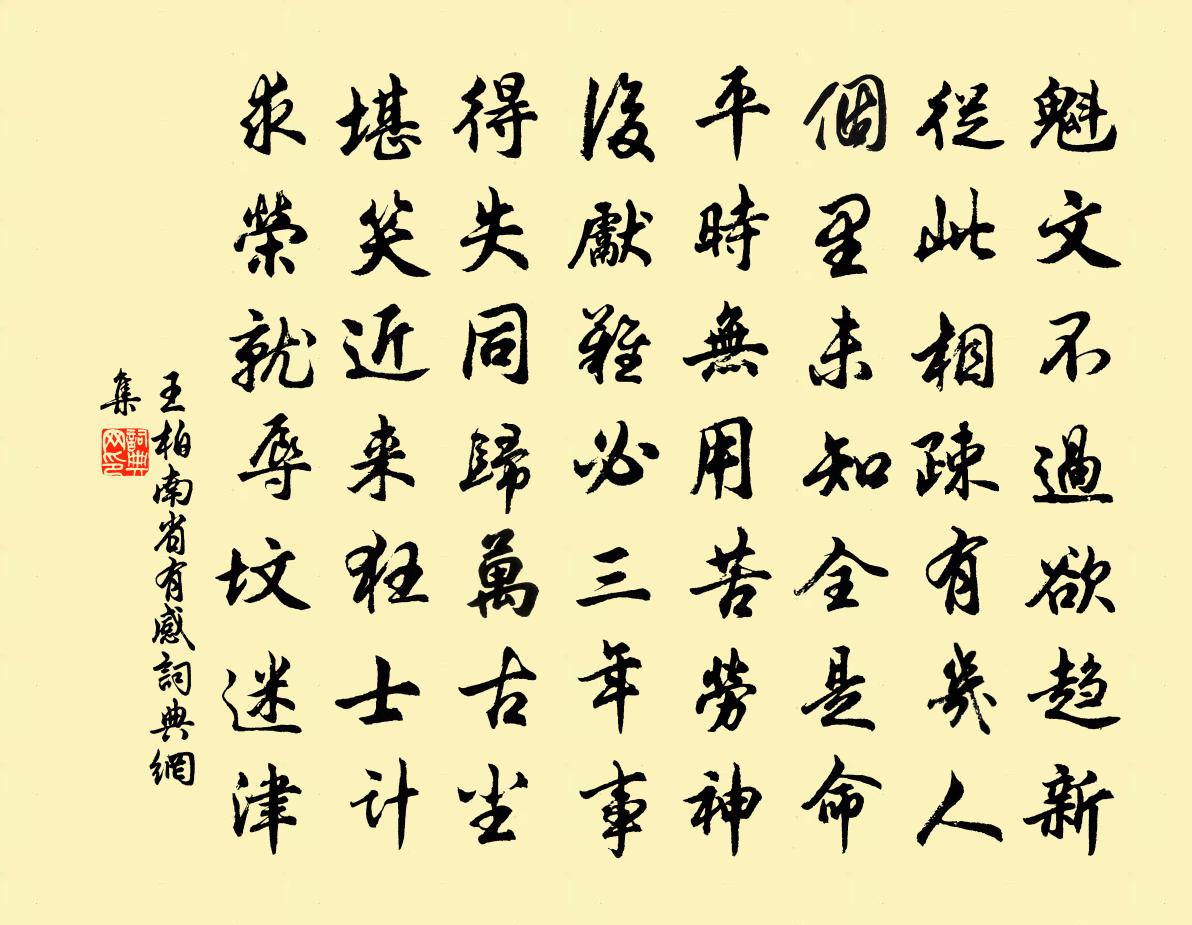 魁文不過欲趋新
從此相疎有幾人
個里未知全是命
平時無用苦勞神
後獻難必三年事
得失同歸萬古尘
堪笑近来狂士计
求榮就辱坟迷津
王柏南省有感詞典網
集
詞典
网印